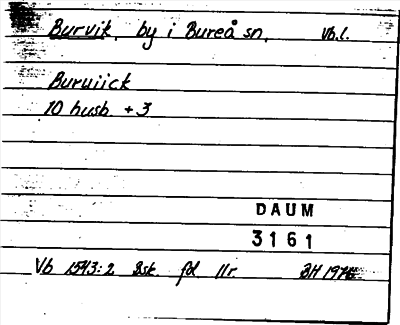 Burvik, by i Bureå sn. Vb.l.
Buruiick
10 husb +3
DAUM
3161
Vb 1543:2 Bsk. fol 11r BH 1976